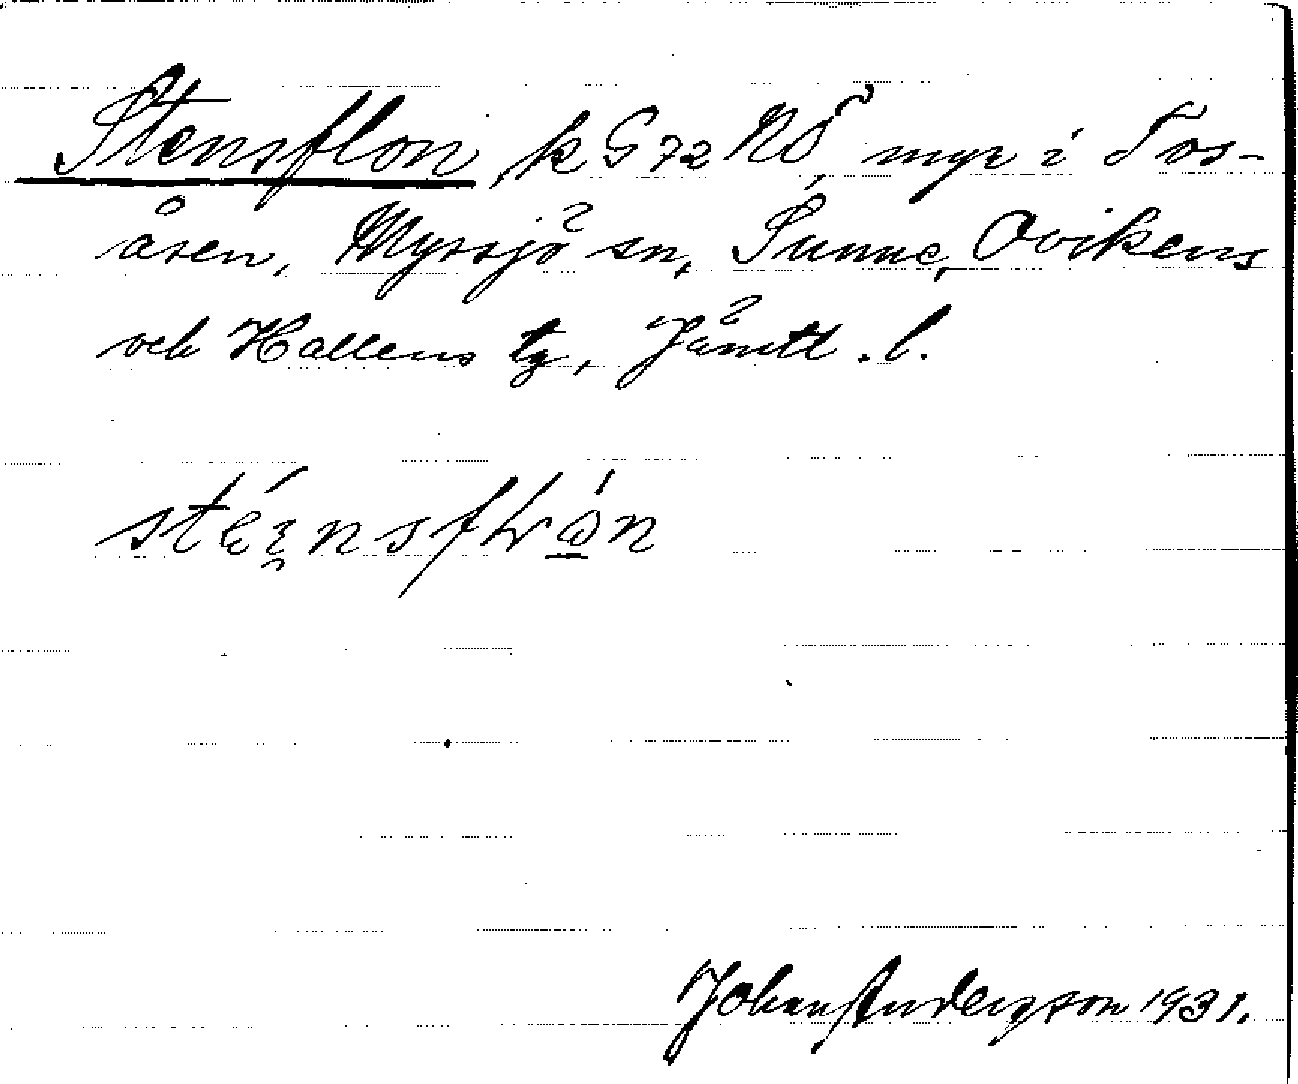 Stensflon, k G 72 NÖ, myr i Tos-
åsen, Myssjö sn, Sunne, Ovikens
och Hallens tg, Jämtl. l.
Johan Anderson 1931.